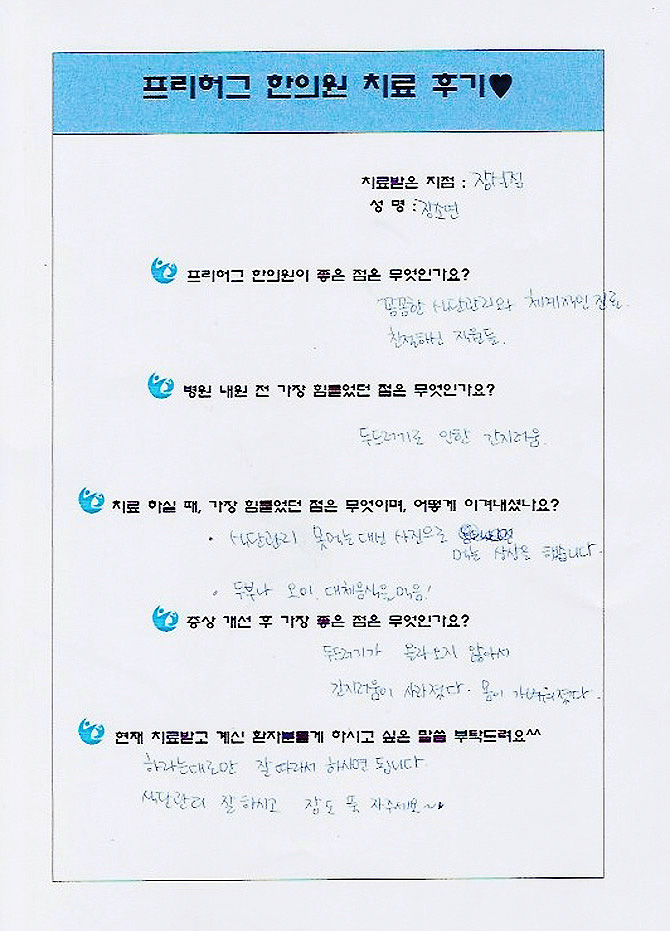 프리허그 한의원 치료 후기♥
치료받은 지점 : 잠실점
성 명 : 장소연
프리허그 한의원이 좋은 점은 무엇인가요?
꼼꼼한 식단관리와 체계적인 진료.
친절하신 직원들.
병원 내원 전 가장 힘들었던 점은 무엇인가요?
두드러기로 인한 간지러움.
치료 하실 때, 가장 힘들었던 점은 무엇이며, 어떻게 이겨내셨나요?
• 식단관리 못먹는대신 사진으로
먹는 상상을 했습니다.
• 두부나 오이. 대체음식을 먹음!
증상 개선 후 가장 좋은 점은 무엇인가요?
두드러기가 올라오지 않아서
간지러움이 사라졌다. 몸이 가벼워졌다.
현재 치료받고 계신 환자분들게 하시고 싶은 말씀 부탁드려요^^
하라는대로만 잘 따라서 하시면 됩니다.
식단관리 잘 하시고 잠도 푹 자주세요~♥